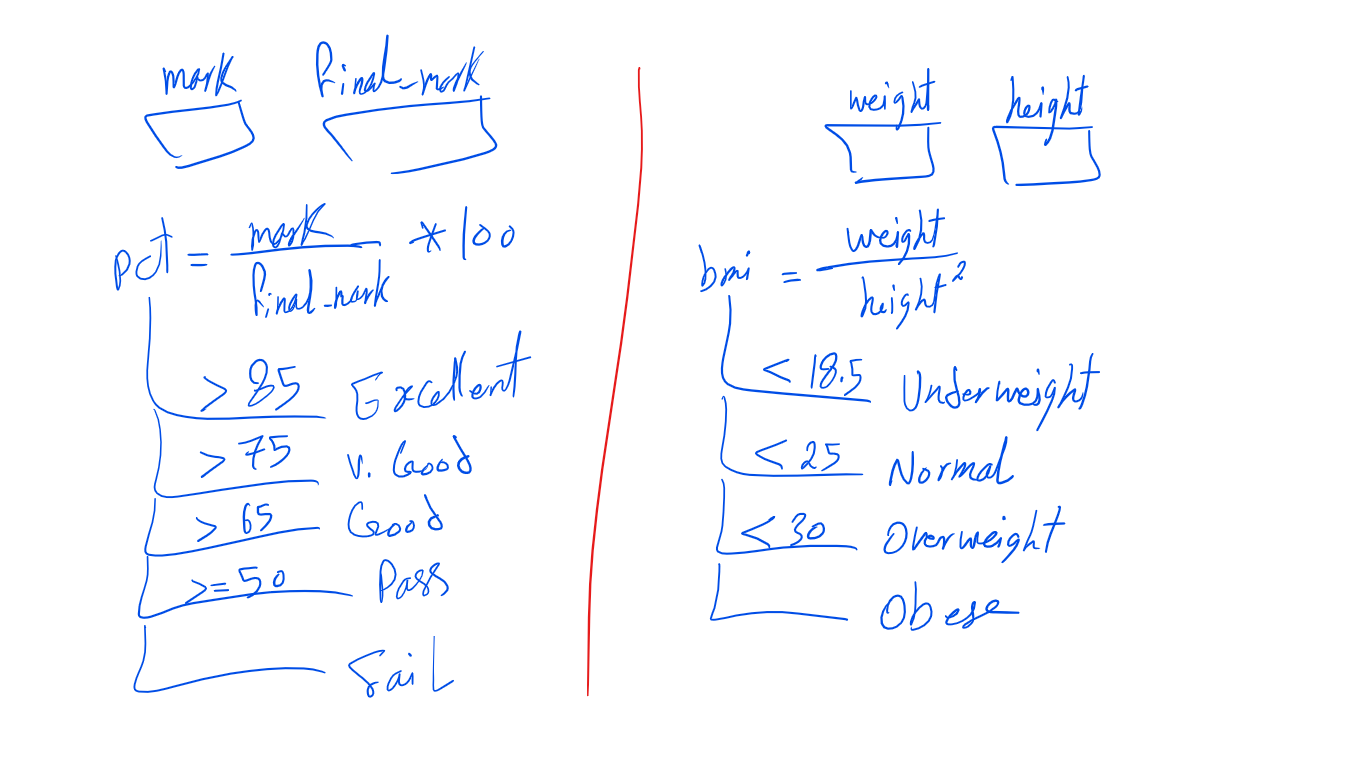 mark final_mark
pct = mark / final_mark * 100
> 85 Excellent
> 75 v. Good
> 65 Good
>= 50 Pass
Fail
weight height
bmi = weight / height²
< 18.5 Underweight
< 25 Normal
< 30 Overweight
Obese